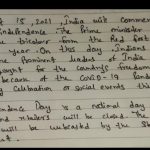 t 15, 2021, India will commem
Independence. The Prime minister
e tricolor from the Red Fort
year. On this day, Indians
the Prominent leaders of India
fought for the country's freedom
because of the COVID-19 Pande
y celebration or social events this
endence Day is a national day
and retailers will be closed. The
will be webcasted by the St
nt.